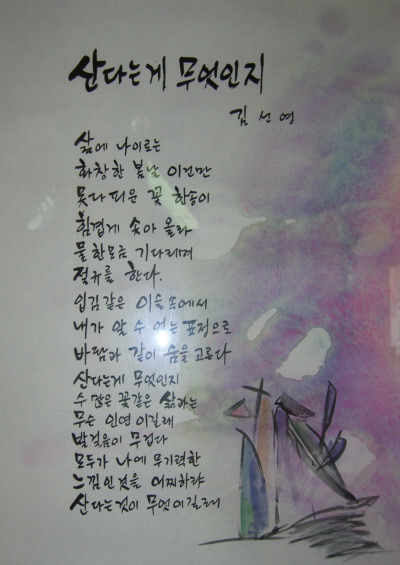 산다는게 무엇인지
김선영
삶에 나이로는
화창한 봄날 이건만
못다 피운 꽃 한송이
힘겹게 솟아 올라
물 한모금 기다리며
절규를 한다.
입김같은 이슬속에서
내가 알 수 없는 표정으로
바람과 같이 숨을 고른다
산다는게 무엇인지
수 많은 꽃같은 삶과는
무슨 인연 이길래
발걸음이 무겁다
모두가 나에 무기력한
느낌인것을 어찌하랴
산다는것이 무엇이길래